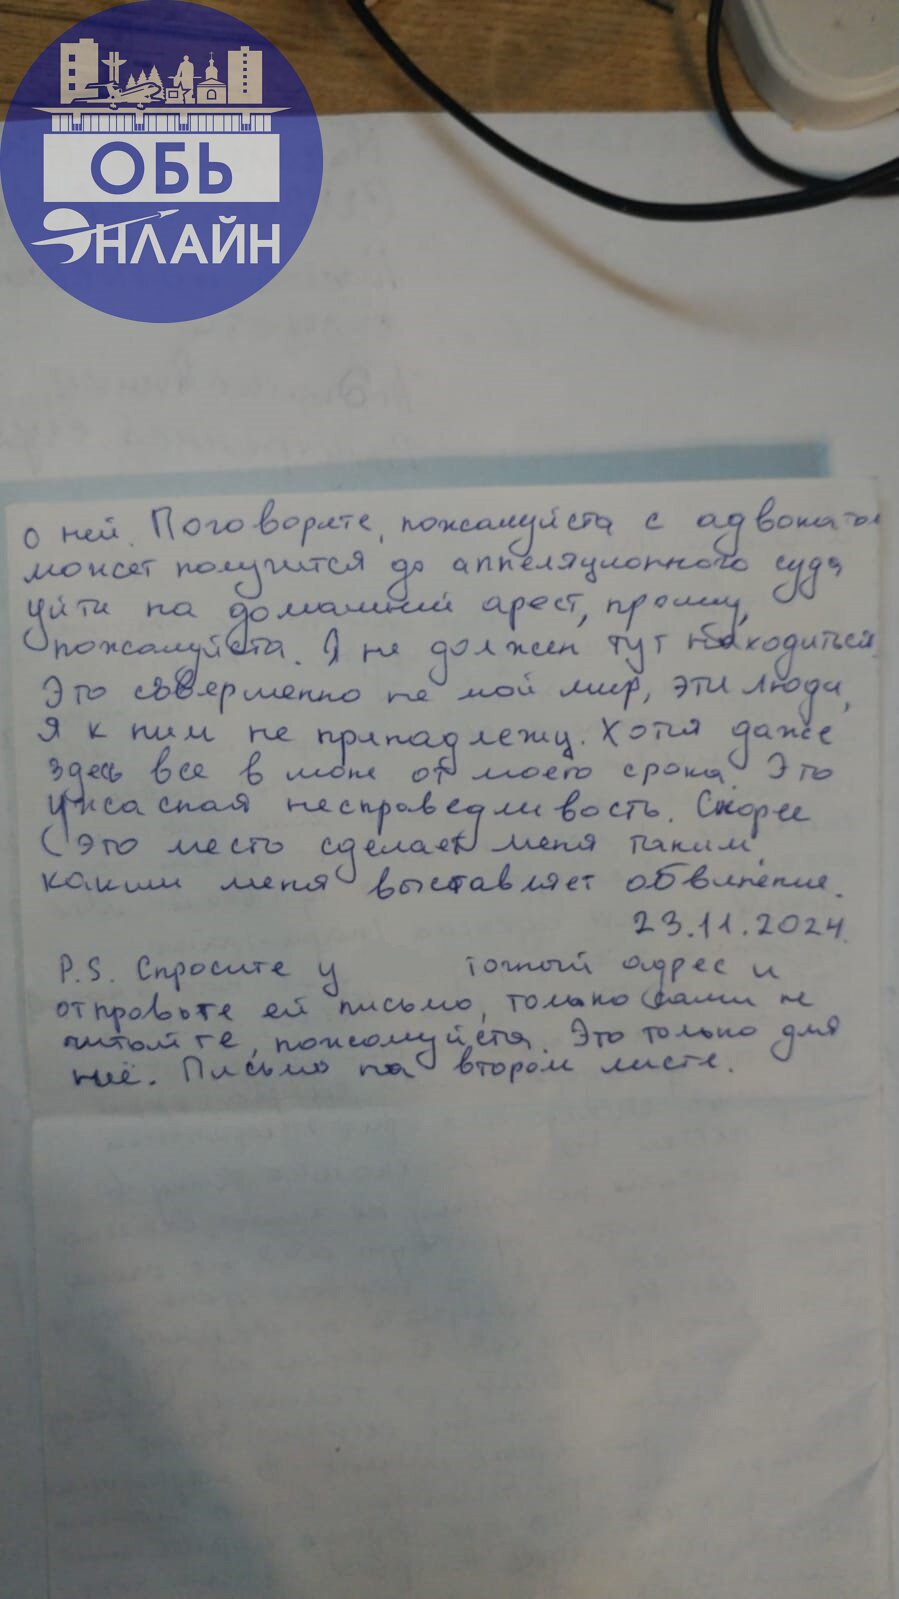 ОБЬ
ОНЛАЙН
о ней. Поговорите, пожалуйста с адвокатом
может получится до аппеляционного суда
уйти на домашний арест, прошу,
пожалуйста. Я не должен тут находиться.
Это совершенно не мой мир, эти люди,
я к ним не принадлежу. Хотя даже
здесь все в шоке от моего срока. Это
ужасная несправедливость. Скорее
это место сделает меня таким,
каким меня выставляет обвинение.
23.11.2024.
P.S. Спросите у точный адрес и
отправьте ей письмо, только сами не
читайте, пожалуйста. Это только для
неё. Письмо на втором листе.